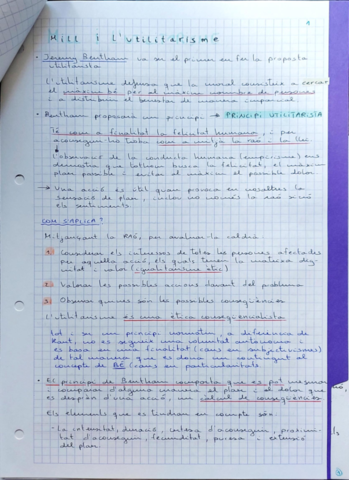 Mill i l'utilitarisme
· Jeremy Bentham va ser el primer en fer la proposta
utilitarista
L'utilitarisme defensa que la moral consisteix a cercar
el màxim bé per al màxim nombre de persones
i a distribuir el benestar de manera imparcial
· Bentham proposarà un principi → PRINCIPI UTILITARISTA
Té com a finalitat la felicitat humana, i per
aconseguir-ho troba com a mitjà la raó i la llei
L'observació de la conducta humana (empirisme) ens
demostra que tothom busca la felicitat, el màxim
plaer possible i evitar al màxim el possible dolor
→ Una acció és útil quan provoca en nosaltres la
sensació de plaer, no només la raó sinó
els sentiments
COM S'APLICA?
Mitjançant la RAÓ, per analitzar-la caldrà
1 Considerar els interessos de totes les persones afectades
per aquella acció, els quals tenen la mateixa dig
nitat i valor (igualitarisme ètic)
2 Valorar les possibles accions davant del problema
3 Observar quines son les possibles conseqüències
L'utilitarisme és una ètica conseqüencialista
Tot i ser un principi normatiu, a diferència de
Kant, no es segueix una voluntat autònoma i
es basa en una finalitat (caus en subjectivismes)
de tal manera que es dona contingut al
concepte de BÉ (caus en particularitats)
· El principi de Bentham comporta que es pot mesurar
i comparar d'alguna manera el plaer i el dolor que
es desprèn d'una acció, un càlcul de conseqüències
Els elements que es tindran en compte són:
· La intensitat, duració, certesa d'aconseguir, proximi-
tat d'aconseguir, fecunditat, puresa i extensió
del plaer